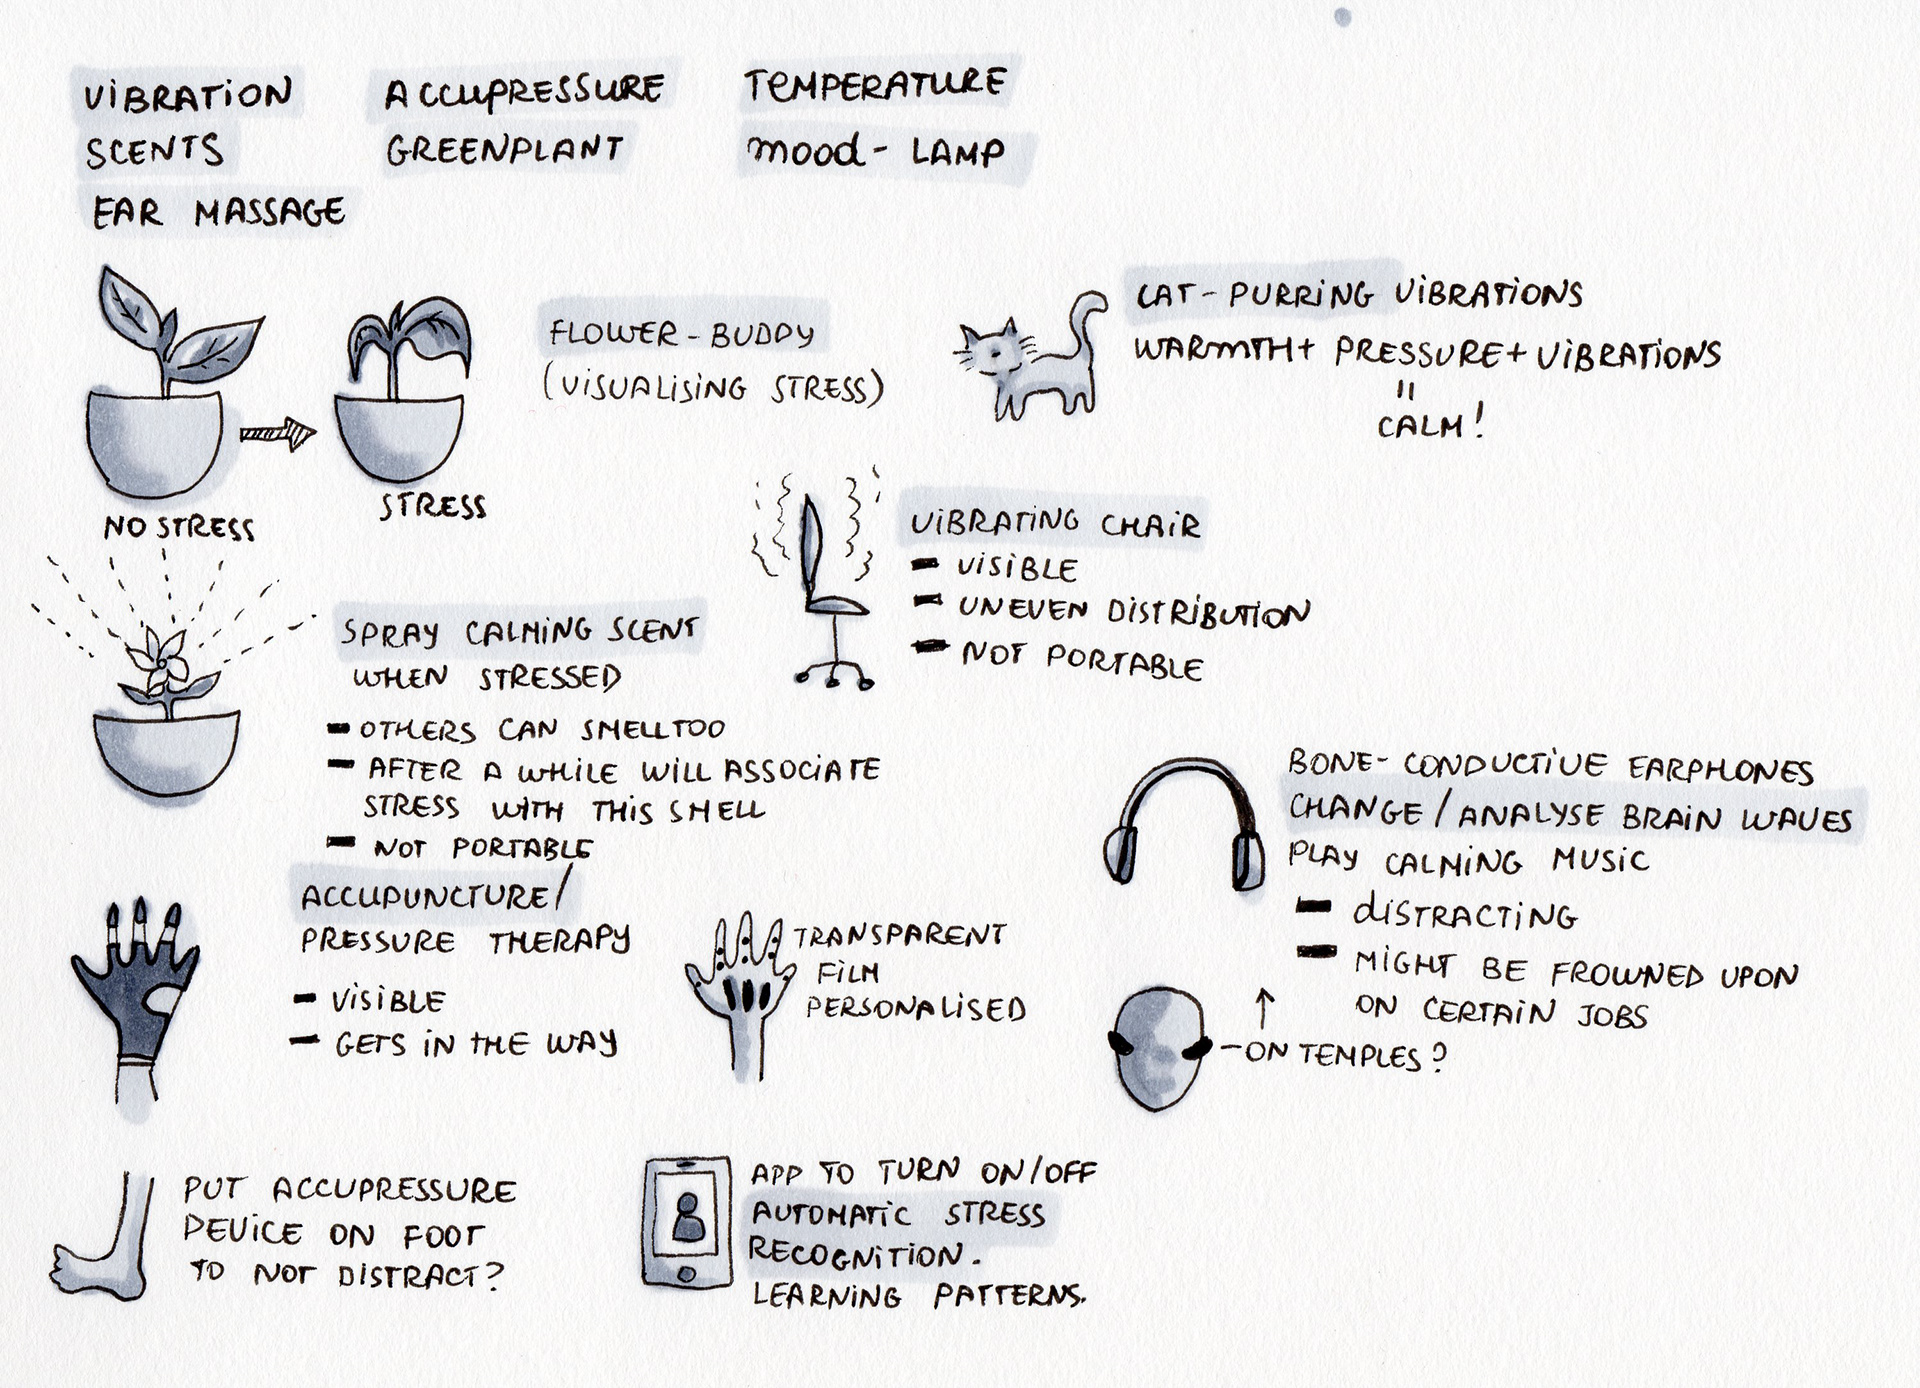 VIBRATION
SCENTS
EAR MASSAGE
ACCUPRESSURE
GREENPLANT
TEMPERATURE
mood- LAMP
NO STRESS
STRESS
FLOWER-BUDDY
(VISUALISING STRESS)
CAT-PURRING VIBRATIONS
WARMTH + PRESSURE + VIBRATIONS
=
CALM!
VIBRATING CHAIR
- VISIBLE
- UNEVEN DISTRIBUTION
- NOT PORTABLE
SPRAY CALMING SCENT
WHEN STRESSED
- OTHERS CAN SMELL TOO
- AFTER A WHILE WILL ASSOCIATE
STRESS WITH THIS SMELL
- NOT PORTABLE
BONE-CONDUCTIVE EARPHONES
CHANGE/ANALYSE BRAIN WAVES
PLAY CALMING MUSIC
- DISTRACTING
- MIGHT BE FROWNED UPON
ON CERTAIN JOBS
↑
-ON TEMPLES?
ACCUPUNCTURE/
PRESSURE THERAPY
- VISIBLE
- GETS IN THE WAY
TRANSPARENT
FILM
PERSONALISED
PUT ACCUPRESSURE
DEVICE ON FOOT
TO NOT DISTRACT?
APP TO TURN ON/OFF
AUTOMATIC STRESS
RECOGNITION.
LEARNING PATTERNS.